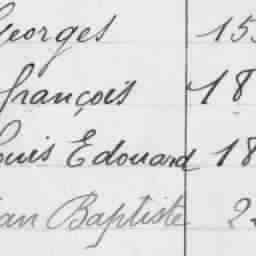 Georges 15
François 18
Louis Edouard 18
Jean Baptiste 2